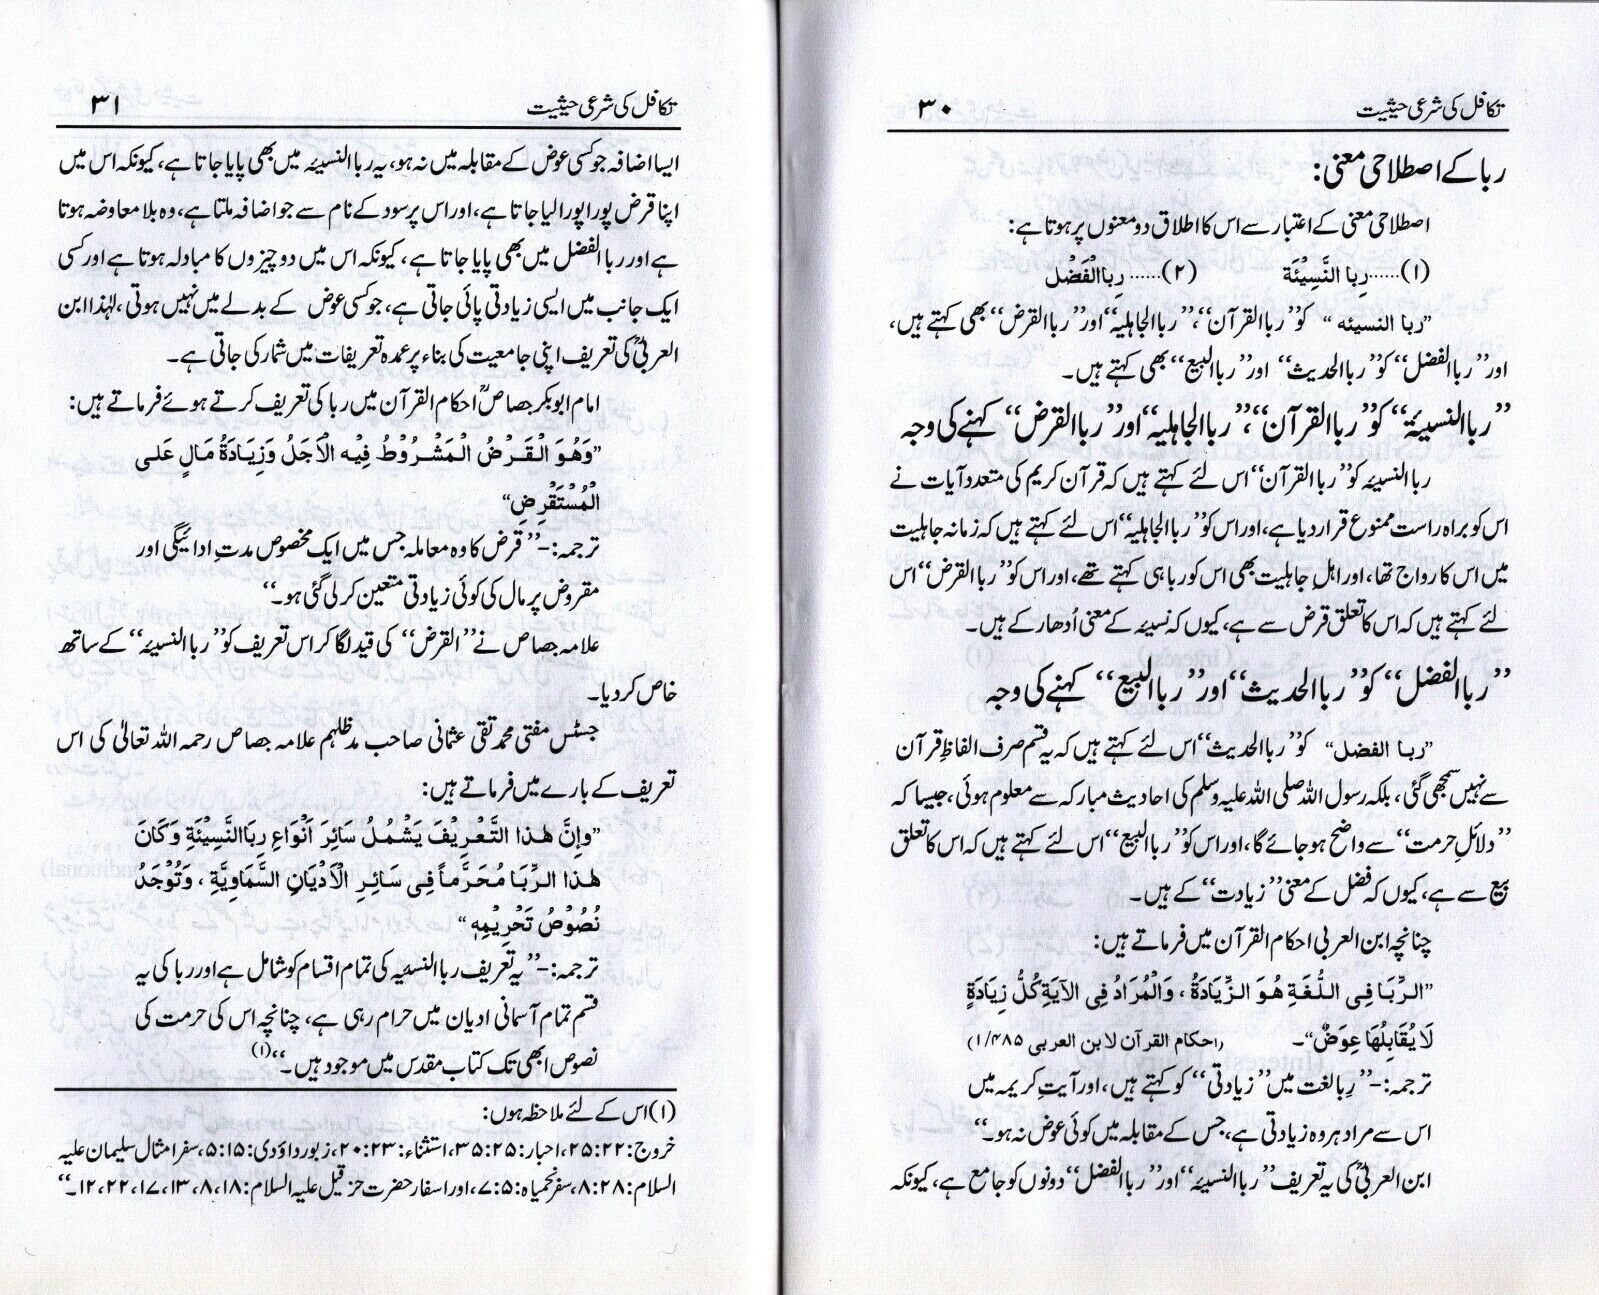 تکافل کی شرعی حیثیت ۳۰
ربا کے اصطلاحی معنی:
اصطلاحی معنی کے اعتبار سے اس کا اطلاق دو معنوں پر ہوتا ہے:
(۱)......رِبا النَّسِیْئَة (۲)...... رِبا الْفَضْل
”ربا النسیئہ“ کو ”ربا القرآن“، ”ربا الجاہلیہ“ اور ”ربا القرض“ بھی کہتے ہیں،
اور ”ربا الفضل“ کو ”ربا الحدیث“ اور ”ربا البیع“ بھی کہتے ہیں۔
”ربا النسیئة“ کو ”ربا القرآن“، ”ربا الجاہلیہ“ اور ”ربا القرض“ کہنے کی وجہ
ربا النسیئہ کو ”ربا القرآن“ اس لئے کہتے ہیں کہ قرآن کریم کی متعدد آیات نے
اس کو براہ راست ممنوع قرار دیا ہے، اور اس کو ”ربا الجاہلیہ“ اس لئے کہتے ہیں کہ زمانہ جاہلیت
میں اس کا رواج تھا، اور اہلِ جاہلیت بھی اس کو ربا ہی کہتے تھے، اور اس کو ”ربا القرض“ اس
لئے کہتے ہیں کہ اس کا تعلق قرض سے ہے، کیوں کہ نسیئہ کے معنی اُدھار کے ہیں۔
”ربا الفضل“ کو ”ربا الحدیث“ اور ”ربا البیع“ کہنے کی وجہ
”ربا الفضل“ کو ”ربا الحدیث“ اس لئے کہتے ہیں کہ یہ قسم صرف الفاظِ قرآن
سے نہیں سمجھی گئی، بلکہ رسول اللہ صلی اللہ علیہ وسلم کی احادیث مبارکہ سے معلوم ہوئی، جیسا کہ
”دلائلِ حرمت“ سے واضح ہو جائے گا، اور اس کو ”ربا البیع“ اس لئے کہتے ہیں کہ اس کا تعلق
بیع سے ہے، کیوں کہ فضل کے معنی ”زیادت“ کے ہیں۔
چنانچہ ابن العربی احکام القرآن میں فرماتے ہیں:
”الرِّبَا فِی اللُّغَةِ هُوَ الزِّیَادَةُ، وَالْمُرَادُ فِی الآیَةِ کُلُّ زِیَادَةٍ
لَا یُقَابِلُهَا عِوَضٌ“۔ (احکام القرآن لابن العربی ۱/۴۸۵)
ترجمہ:- ”رِبا لغت میں ”زیادتی“ کو کہتے ہیں، اور آیتِ کریمہ میں
اس سے مراد ہر وہ زیادتی ہے، جس کے مقابلہ میں کوئی عوض نہ ہو۔“
ابن العربیؒ کی یہ تعریف ”ربا النسیئہ“ اور ”ربا الفضل“ دونوں کو جامع ہے، کیونکہ
تکافل کی شرعی حیثیت ۳۱
ایسا اضافہ جو کسی عوض کے مقابلہ میں نہ ہو، یہ ربا النسیئہ میں بھی پایا جاتا ہے، کیونکہ اس میں
اپنا قرض پورا پورا لیا جاتا ہے، اور اس پر سود کے نام سے جو اضافہ ملتا ہے، وہ بلا معاوضہ ہوتا
ہے اور ربا الفضل میں بھی پایا جاتا ہے، کیونکہ اس میں دو چیزوں کا مبادلہ ہوتا ہے اور کسی
ایک جانب میں ایسی زیادتی پائی جاتی ہے، جو کسی عوض کے بدلے میں نہیں ہوتی، لہٰذا ابن
العربیؒ کی تعریف اپنی جامعیت کی بناء پر عمدہ تعریفات میں شمار کی جاتی ہے۔
امام ابوبکر جصاصؒ احکام القرآن میں ربا کی تعریف کرتے ہوئے فرماتے ہیں:
”وَهُوَ الْقَرْضُ الْمَشْرُوْطُ فِیْهِ الْاَجَلُ وَزِیَادَةُ مَالٍ عَلَی
الْمُسْتَقْرِضِ“
ترجمہ:- ”قرض کا وہ معاملہ جس میں ایک مخصوص مدتِ ادائیگی اور
مقروض پر مال کی کوئی زیادتی متعین کر لی گئی ہو۔“
علامہ جصاص نے ”القرض“ کی قید لگا کر اس تعریف کو ”ربا النسیئہ“ کے ساتھ
خاص کر دیا۔
جسٹس مفتی محمد تقی عثمانی صاحب مدظلہم علامہ جصاص رحمہ اللہ تعالیٰ کی اس
تعریف کے بارے میں فرماتے ہیں:
”وَإِنَّ هٰذا التَّعْرِیْفَ یَشْمُلُ سَائِرَ أَنْوَاعِ رِبَا النَّسِیْئَةِ وَکَانَ
هٰذا الرِّبَا مُحَرَّماً فِی سَائِرِ الْأَدْیَانِ السَّمَاوِیَّةِ، وَتُوْجَدُ
نُصُوْصُ تَحْرِیْمِهٖ“
ترجمہ:- ”یہ تعریف ربا النسیئہ کی تمام اقسام کو شامل ہے اور ربا کی یہ
قسم تمام آسمانی ادیان میں حرام رہی ہے، چنانچہ اس کی حرمت کی
نصوص ابھی تک کتاب مقدس میں موجود ہیں۔“(۱)
(۱) اس کے لئے ملاحظہ ہوں:
خروج:۲۵:۲۲، احبار:۳۵:۲۵، استثناء:۲۰:۲۳، زبور داؤدی:۵:۱۵، سفر امثال سلیمان علیہ
السلام:۸:۲۸، سفر نحمیاہ:۷:۵، اور اسفار حضرت حزقیل علیہ السلام:۸،۱۸، ۱۳، ۱۷، ۲۲، ۱۲۔“